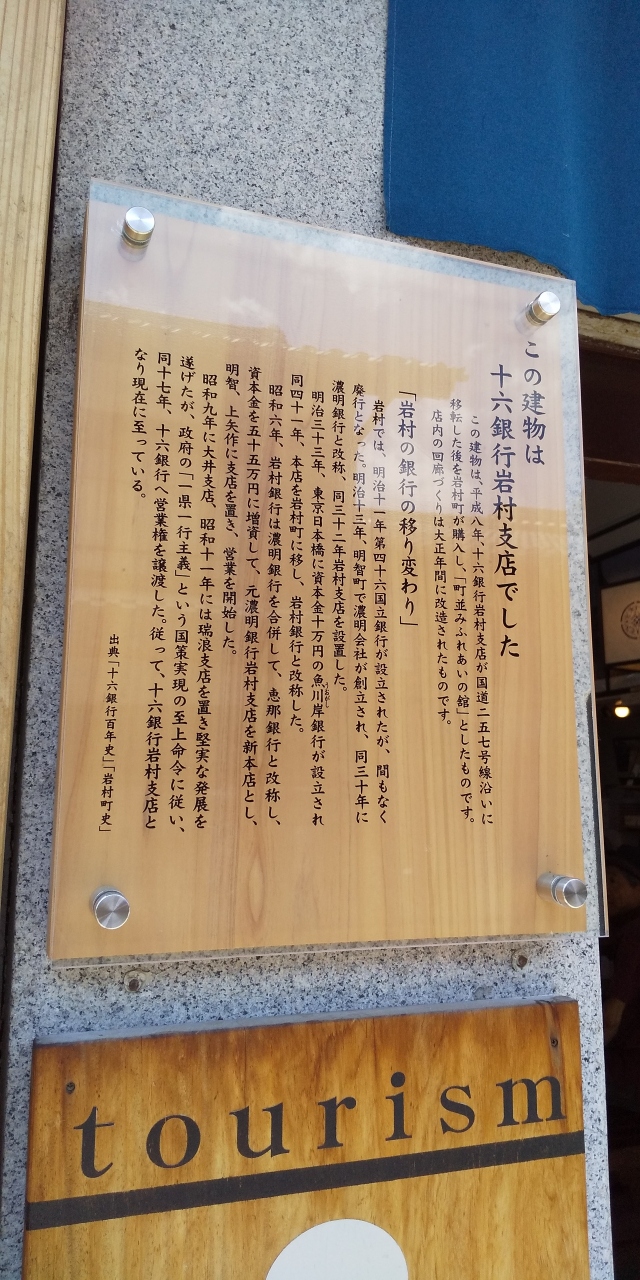 この建物は
十六銀行岩村支店でした
この建物は、平成八年、十六銀行岩村支店が国道二五七号線沿いに
移転した後を岩村町が購入し、「町並みふれあいの舘」としたものです。
店内の回廊づくりは大正年間に改造されたものです。
「岩村の銀行の移り変わり」
岩村では、明治十一年第四十六国立銀行が設立されたが、間もなく
廃行となった。明治十三年、明智町で濃明会社が創立され、同三十年に
濃明銀行と改称、同三十二年岩村支店を設置した。
明治三十三年、東京日本橋に資本金十万円の魚川岸銀行が設立され
うおがし
同四十一年、本店を岩村町に移し、岩村銀行と改称した。
昭和六年、岩村銀行は濃明銀行を合併して、恵那銀行と改称し、
資本金を五十五万円に増資して、元濃明銀行岩村支店を新本店とし、
明智、上矢作に支店を置き、営業を開始した。
昭和九年に大井支店、昭和十一年には瑞浪支店を置き堅実な発展を
遂げたが、政府の「一県一行主義」という国策実現の至上命令に従い、
同十七年、十六銀行へ営業権を譲渡した。従って、十六銀行岩村支店と
なり現在に至っている。
出典「十六銀行百年史」「岩村町史」
tourism